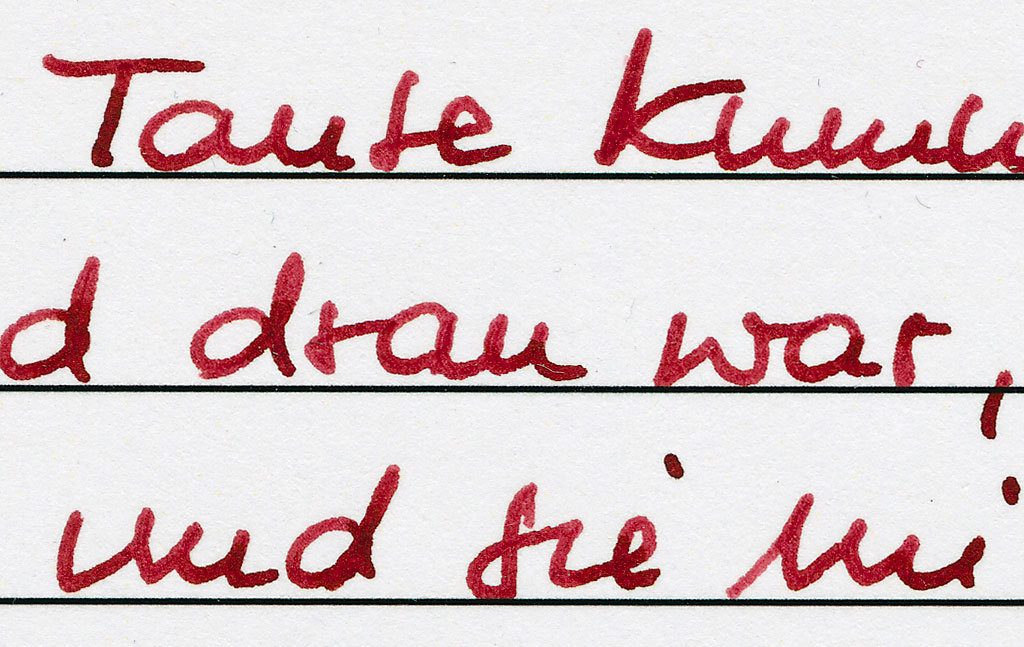 Tante
d dran war,
und sie mi